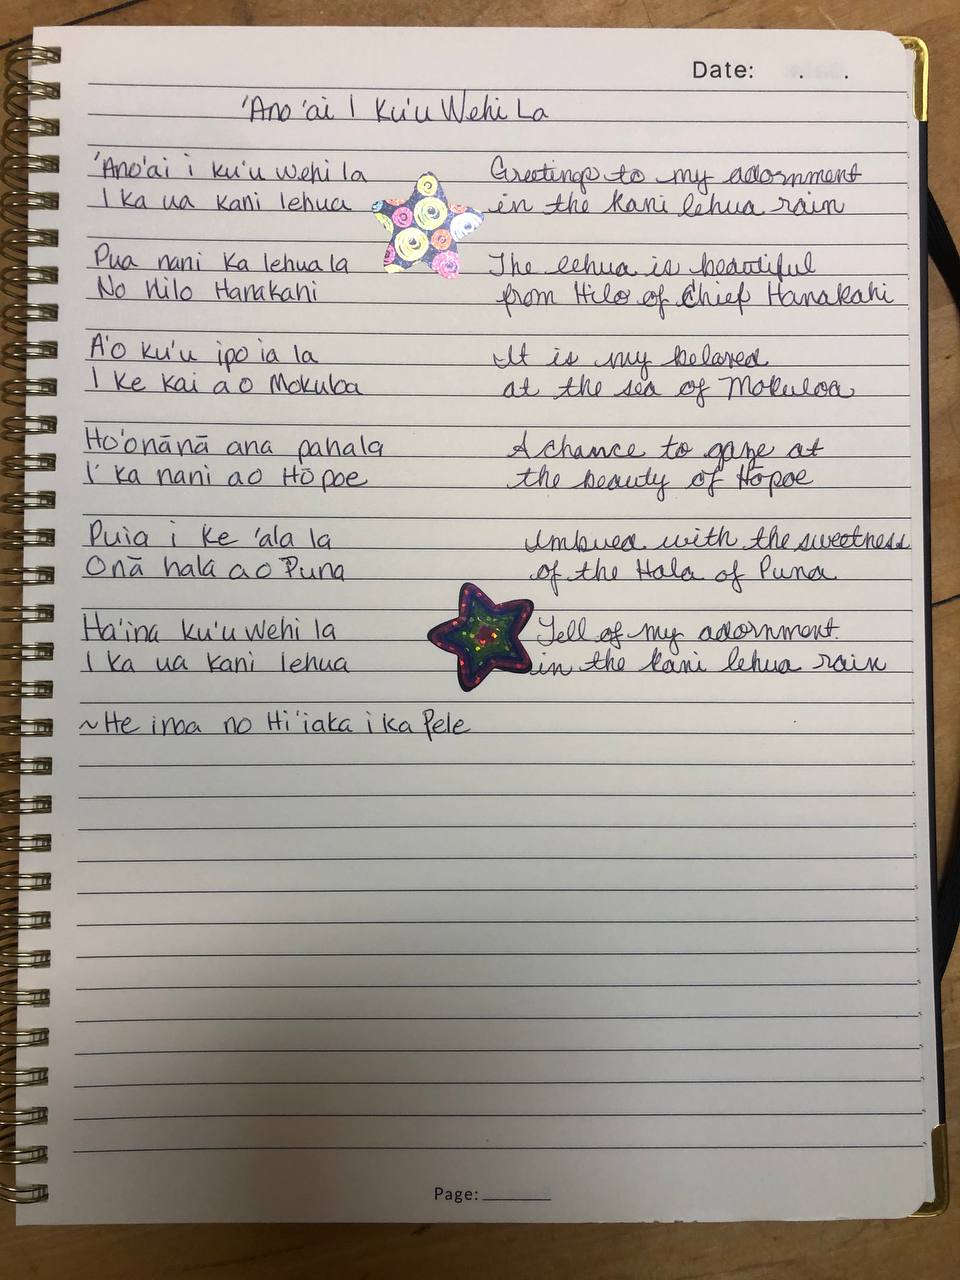 Date: . .
'Ano'ai I Ku'u Wehi La
'Ano'ai i ku'u wehi la
I ka ua kani lehua
Pua nani ka lehua la
No Hilo Hanakahi
A'o ku'u ipo ia la
I ke kai ao Mokuloa
Ho'onānā ana pahala
I' ka nani ao Hōpoe
Puia i ke 'ala la
Onā hala ao Puna
Ha'ina ku'u wehi la
I ka ua kani lehua
~He inoa no Hi'iaka i ka Pele
Greetings to my adornment
in the kani lehua rain
The lehua is beautiful
from Hilo of Chief Hanakahi
It is my beloved
at the sea of Mokuloa
A chance to gaze at
the beauty of Hōpoe
Imbued with the sweetness
of the Hala of Puna
Tell of my adornment
in the kani lehua rain
Page: